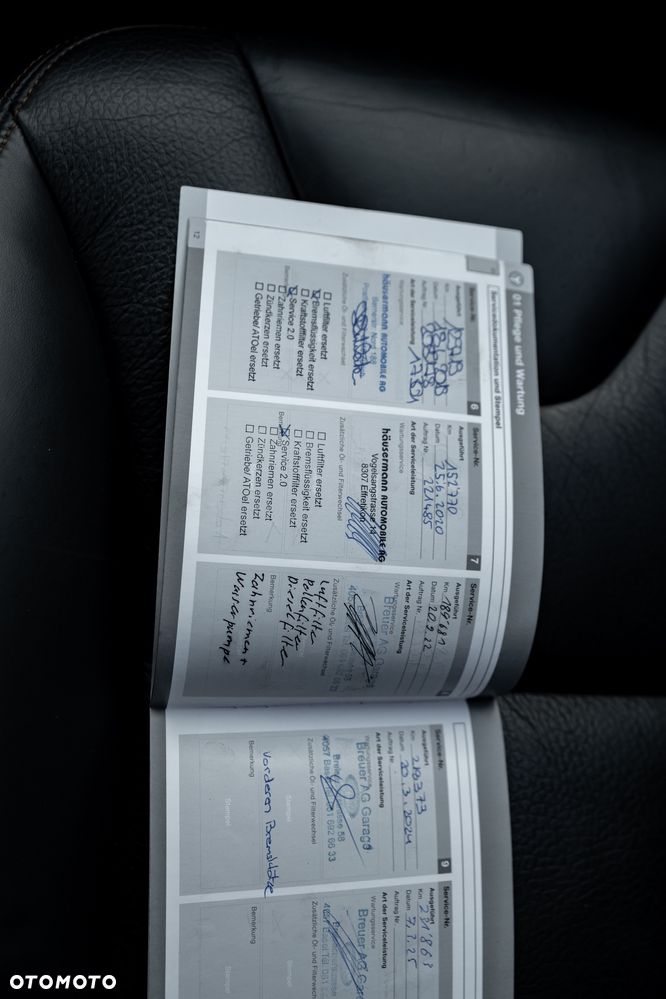 01 Pflege und Wartung
Servicedokumentation und Stempel
Service-Nr. 6
Ausgeführt
Km
Datum
Auftrag Nr.
Art der Serviceleistung
Wartungsservice
häusermann AUTOMOBILE AG
Zusätzliche Öl- und Filterwechsel
Luftfilter ersetzt
Bremsflüssigkeit ersetzt
Kraftstofffilter ersetzt
Service 2.0
Zahnriemen ersetzt
Zündkerzen ersetzt
Getriebe/ ATOel ersetzt
12
Service-Nr. 7
Ausgeführt
Km 152'770
Datum 25.6.2020
Auftrag Nr. 221485
Art der Serviceleistung
Wartungsservice
häusermann AUTOMOBILE AG
Vogelsangstrasse 14
8307 Effretikon
Zusätzliche Öl- und Filterwechsel
Luftfilter ersetzt
Bremsflüssigkeit ersetzt
Kraftstofffilter ersetzt
Service 2.0
Zahnriemen ersetzt
Zündkerzen ersetzt
Getriebe/ ATOel ersetzt
Service-Nr.
Ausgeführt
Km 189'681
Datum 20.9.22
Auftrag Nr.
Art der Serviceleistung
Wartungsservice
Breuer AG Garage
Zusätzliche Öl- und Filterwechsel
Luftfilter
Pollenfilter
Dieselfilter
Bemerkung
Zahnriemen +
Wasserpumpe
Service-Nr. 9
Ausgeführt
Km 218'373
Datum 20.3.2024
Auftrag Nr.
Art der Serviceleistung
Wartungsservice
Breuer AG Garage
4057 Basel 061 692 66 33
Zusätzliche Öl- und Filterwechsel
Stempel
Bemerkung
vorderen Bremsklötze
Stempel
Service-Nr.
Ausgeführt
Km 231'869
Datum 7.3.25
Auftrag Nr.
Art der Serviceleistung
Wartungsservice
Breuer AG
Zusätzliche Öl- und Filterwechsel
Stempel
Bemerkung
Stempel
OTOMOTO